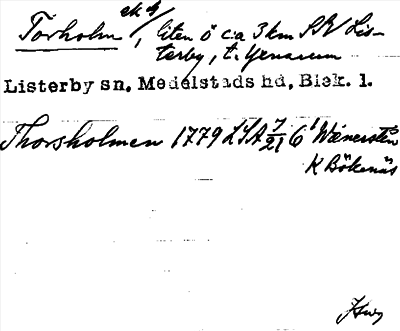 Torholm, liten ö c:a 3 km SV Lis-
terby, t. Genarum
Listerby sn. Medelstads hd, Blek. l.
Thorsholmen 1779 LSA 7/21 6¹ Wänerstén
K Bökenäs